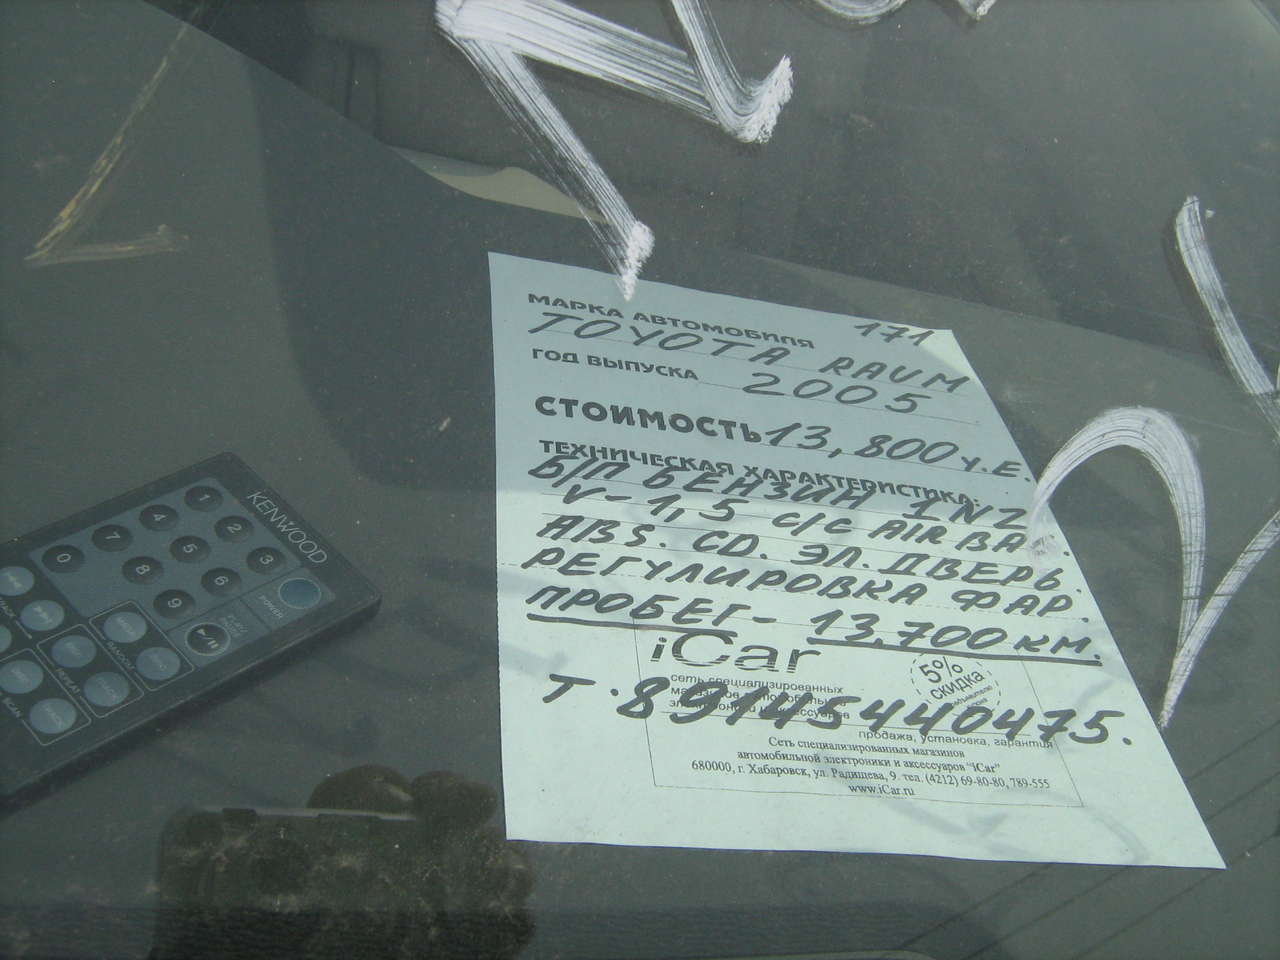 МАРКА АВТОМОБИЛЯ 171
TOYOTA RAUM
ГОД ВЫПУСКА 2005
СТОИМОСТЬ 13,800 у.Е.
ТЕХНИЧЕСКАЯ ХАРАКТЕРИСТИКА:
Б/П БЕНЗИН 1NZ
V-1,5 C/C AIR BA
ABS. CD. ЭЛ. ДВЕРЬ.
РЕГУЛИРОВКА ФАР.
ПРОБЕГ - 13.700 КМ.
iCar
5% скидка
сеть специализированных
Т. 89145440475.
продажа, установка, гарантия
Сеть специализированных магазинов
автомобильной электроники и аксессуаров "iCar"
680000, г. Хабаровск, ул. Радищева, 9. тел. (4212) 69-80-80, 789-555
www.iCar.ru
KENWOOD
1 2 3
4 5 6
7 8 9
0
POWER
RANDOM
REPEAT
SCAN